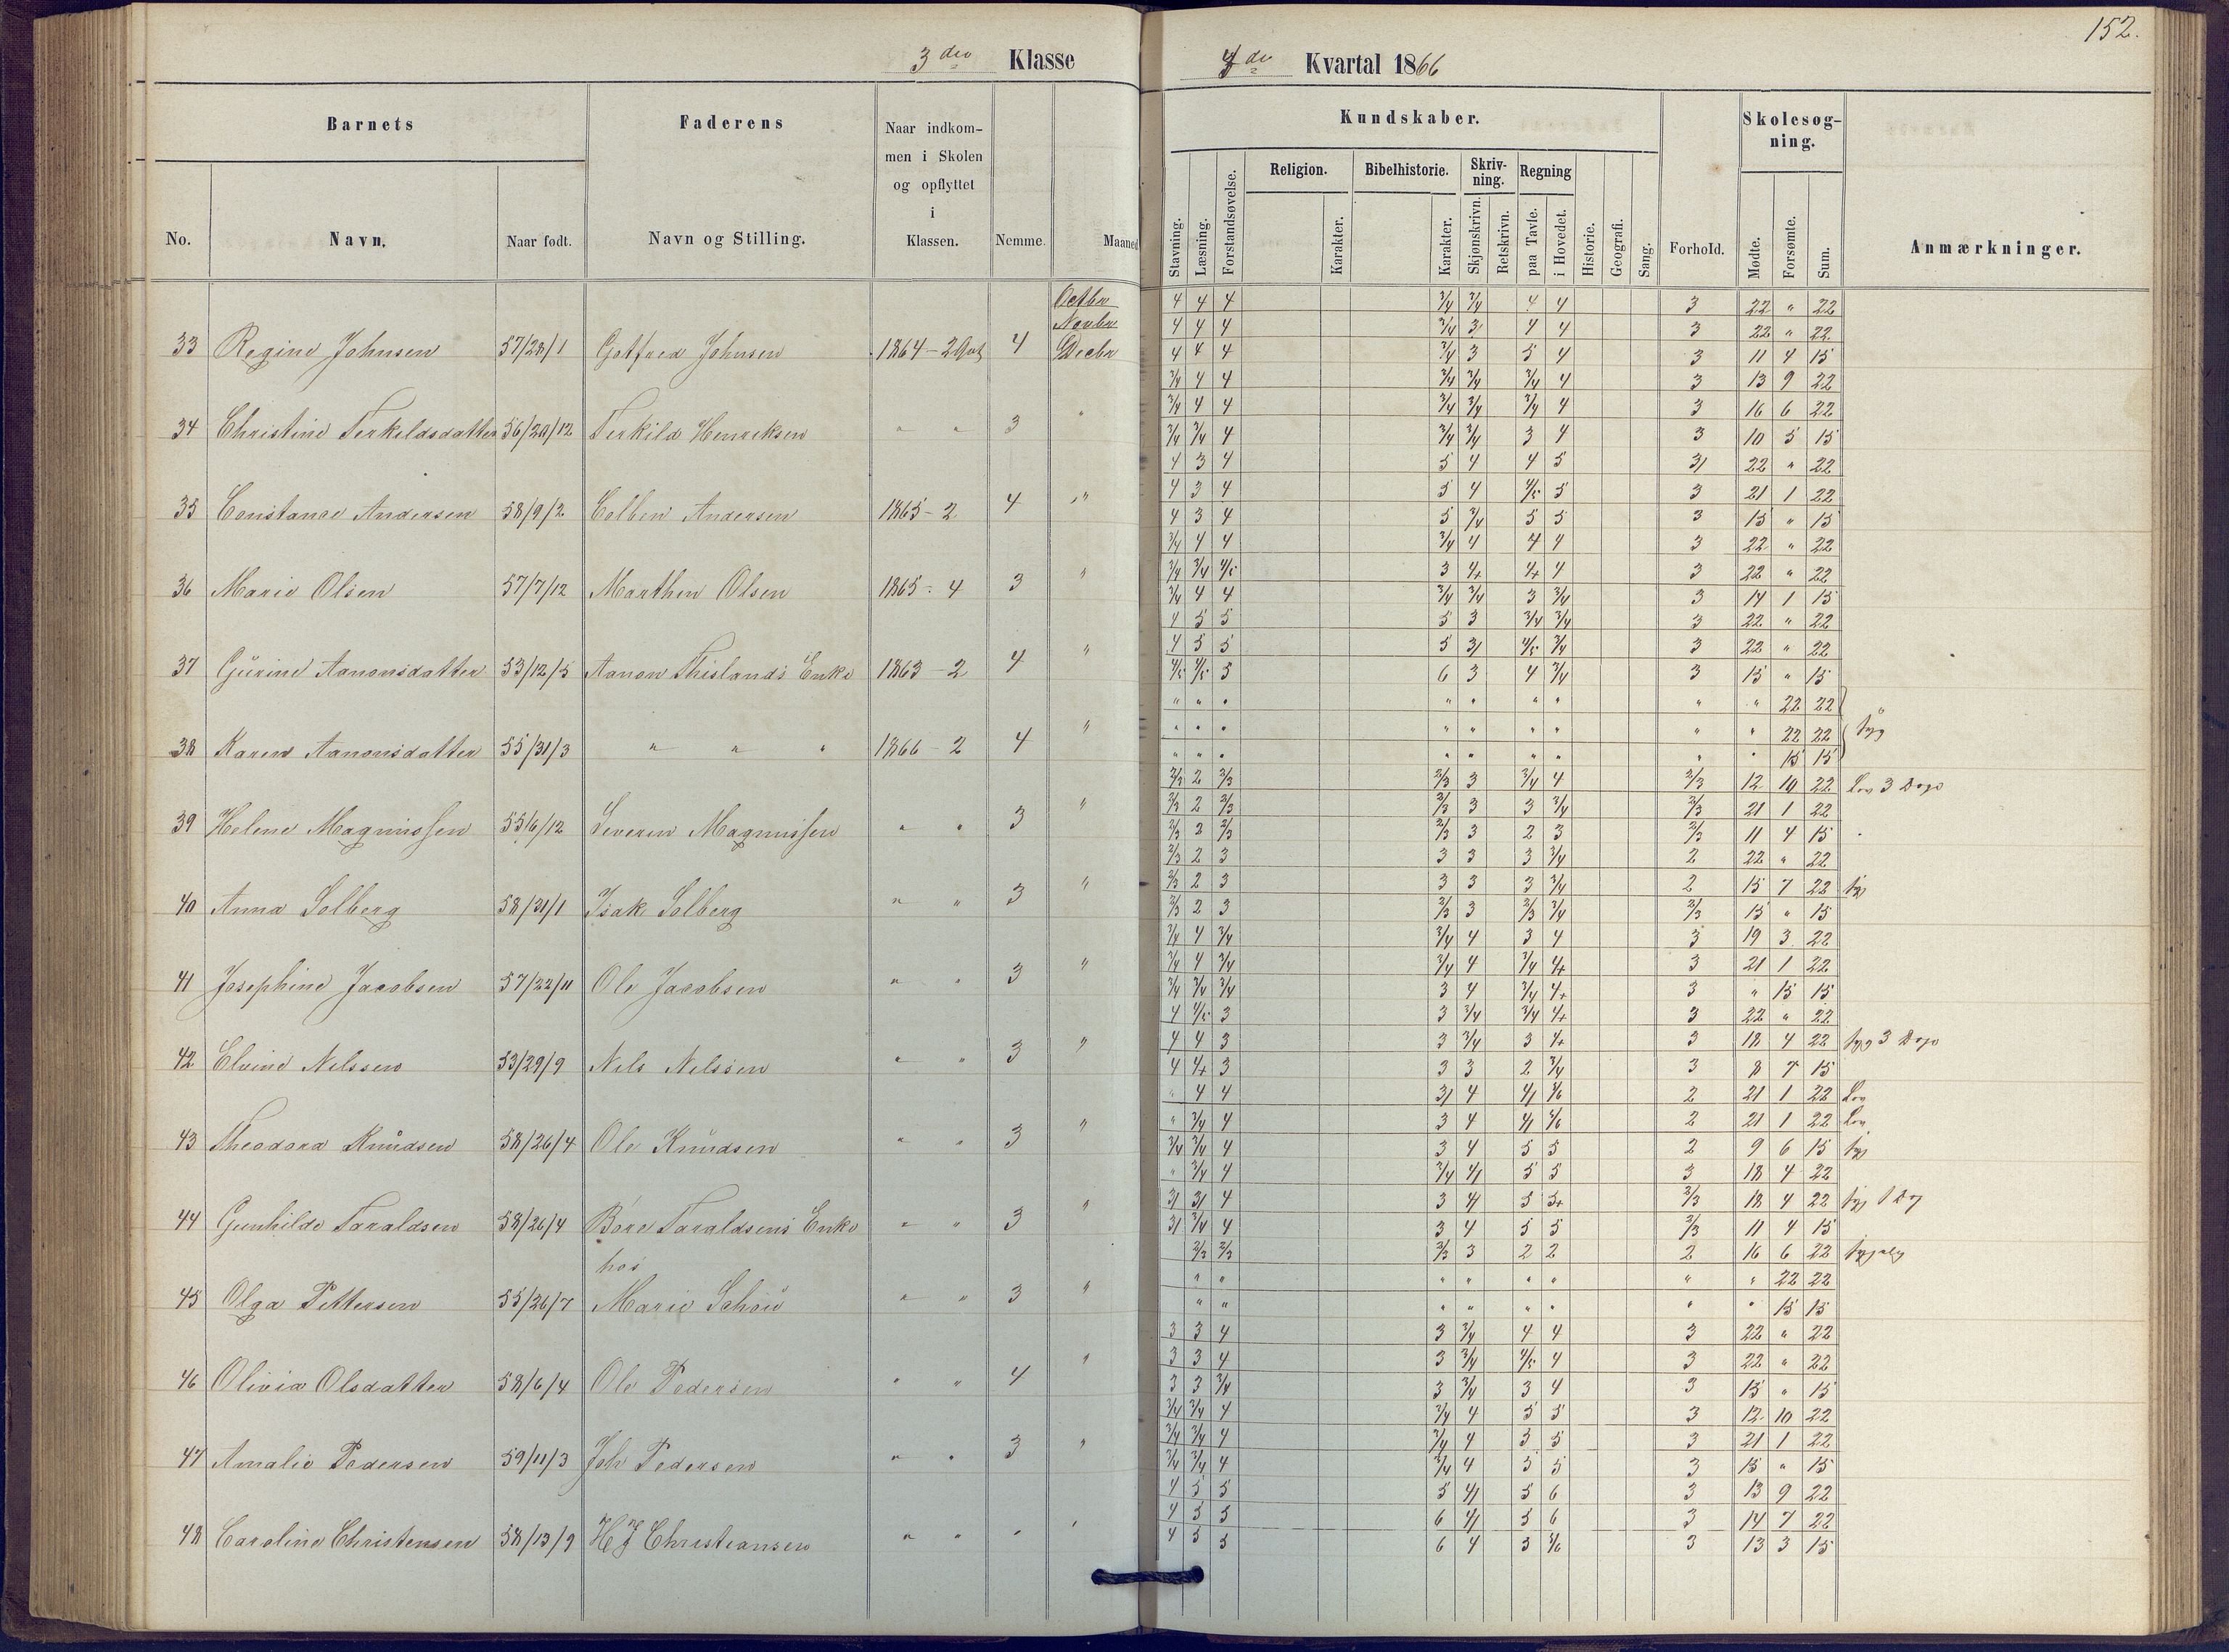 152.
3die Klasse
4de Kvartal 1866
Barnets
Faderens
Naar indkommen i Skolen og opflyttet i Klassen.
No.
Navn.
Naar født.
Navn og Stilling.
Nemme.
Maaned
Kundskaber.
Skolesøgning.
Stavning.
Læsning.
Forstandsøvelse.
Religion.
Karakter.
Bibelhistorie.
Karakter.
Skrivning.
Skjønskrivn.
Retskrivn.
Regning
paa Tavle.
i Hovedet.
Historie.
Geografi.
Sang.
Forhold.
Mødte.
Forsømte.
Sum.
Anmærkninger.
Octbr
Novbr
33 Regine Johnsen 57/28/1 Gotfred Johnsen 1864 - 2 4 Decbr
34 Christine Terkildsdatter 56/20/12 Terkild Henriksen " " 3 "
35 Constance Andersen 58/9/2 Colben Andersen 1865 - 2 4 "
36 Marie Olsen 57/7/12 Marthen Olsen 1865 - 4 3 "
37 Gurine Aanonsdatter 53/12/5 Aanon Thislands Enke 1863 - 2 4 "
38 Karen Aanonsdatter 55/31/3 " " " 1866 - 2 4 "
39 Helene Magnussen 55/6/12 Severin Magnussen " " 3 "
40 Anna Solberg 58/31/1 Isak Solberg " " 3 "
41 Josephine Jacobsen 57/22/11 Ole Jacobsen " " 3 "
42 Elvine Nilssen 53/29/9 Nils Nilssen " " 3 "
43 Theodora Knudsen 58/26/4 Ole Knudsen " " 3 "
44 Gunhilde Taraldsen 58/26/4 Børe Taraldsens Enke " " 3 "
hos
45 Olga Pettersen 55/26/7 Marie Schou " " 3 "
46 Olivia Olsdatter 58/6/4 Ole Pedersen " " 4 "
47 Amalie Pedersen 59/11/3 Joh Pedersen " " 3 "
48 Caroline Christensen 58/13/9 H J Christiansen " " " "
4 4 4 3/4 3/4 4 4 3 22 " 22
4 4 4 3/4 3 4 4 3 22 " 22
4 4 4 3/4 3 5 4 3 11 4 15
3/4 4 4 3/4 3/4 3/4 4 3 13 9 22
3/4 4 4 3/4 3/4 3/4 4 3 16 6 22
3/4 3/4 4 3/4 3/4 3 4 3 10 5 15
4 3 4 5 4 4 5 3/ 22 " 22
4 3 4 5 4 4/5 5 3 21 1 22
4 3 4 5 3/4 5 5 3 15 " 15
3/4 4 4 3/4 4 4 4 3 22 " 22
3/4 3/4 4/5 3 4+ 4+ 4 3 22 " 22
3/4 4 4 3/4 3/4 3 3/4 3 14 1 15
4 5 5 5 3 3/4 3/4 3 22 " 22
4 5 5 5 3/ 4/5 3/4 3 22 " 22
4/5 4/5 5 6 3 4 3/4 3 15 " 15
" " " " " " " " " 22 22
" " " " " " " " " 22 22 syg
" " " " " " " " " 15 15
2/3 2 2/3 2/3 3 3/4 4 2/3 12 10 22 Lov 3 Dage
2/3 2 2/3 2/3 3 3 3/4 2/3 21 1 22
2/3 2 2/3 2/3 3 2 3 2/3 11 4 15
2/3 2 3 3 3 3 3/4 2 22 " 22
2/3 2 3 3 3 3 3/4 2 15 7 22 syg
2/3 2 3 2/3 3 2/3 3/4 2/3 15 " 15
3/4 4 3/4 3/4 4 3 4 3 19 3 22
3/4 4 3/4 3/4 4 3/4 4+ 3 21 1 22
3/4 3/4 3/4 3 4 3/4 4+ 3 " 15 15
4 4/5 3 3 3/4 3/4 4+ 3 22 " 22
4 4 3 3 3/4 3 4+ 3 18 4 22 syg 3 Dage
4 4+ 3 3 3 2 3/4 3 8 7 15
" 4 4 3/ 4 4/ 5/6 2 21 1 22 Lov
" 3/4 4 3 4 4/ 5/6 2 21 1 22 Lov
3/4 3/4 4 3 4 5 5 2 9 6 15 syg
" 3/4 4 3/4 4/ 5 5 3 18 4 22
3/ 3/ 4 3 4/ 5 5+ 2/3 18 4 22 syg 1 Dag
3/ 3/4 4 3 4 5 5 2/3 11 4 15
2/3 2/3 2/3 3 2 2 2 16 6 22
" " " " " " " " 22 22
" " " " " " " " 15 15
3 3 4 3 3/4 4 4 3 22 " 22
3 3 4 3 3/4 4/5 4 3 22 " 22
3 3 3/4 3 3/4 3 4 3 15 " 15
3/4 3/4 4 3/4 4 5 5 3 12 10 22
3/4 3/4 4 3/4 4 5 5 3 21 1 22
3/4 3/4 4 3/4 4 5 5 3 15 " 15
4 5 5 5 4/ 5 6 3 13 9 22
4 5 5 6 4/ 5 6 3 14 7 22
4 5 5 6 4 5 5/6 3 13 3 15